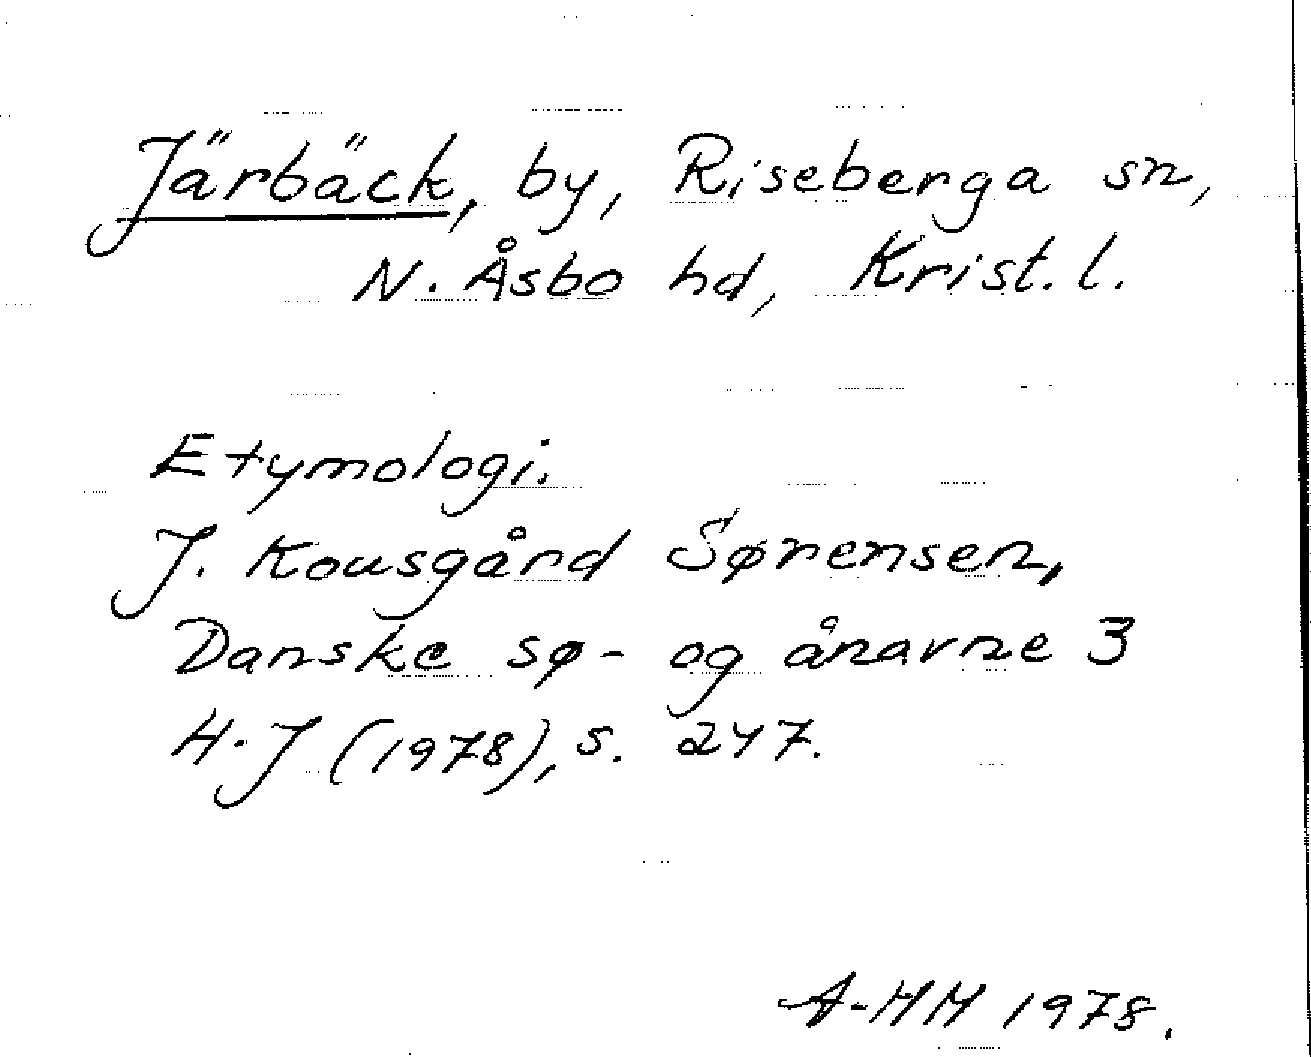 Järbäck, by, Riseberga sn,
N. Åsbo hd, Krist. l.
Etymologi.
J. Kousgård Sørensen,
Danske sø- og ånavne 3
H-J (1978), s. 247.
A-HM 1978.